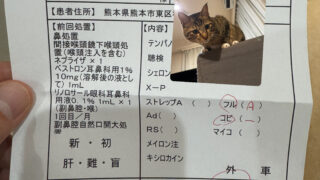 【患者住所】 熊本県熊本市東区
【前回処置】
鼻処置
間接喉頭鏡下喉頭処
置(喉頭注入を含む)
ネブライザ×1
ベストロン耳鼻科用1%
10mg(溶解後の液とし
て) 1mL
リノロサール眼科耳鼻科
用液0.1% 1mL×1
(副鼻腔・喉)
1回目/月
副鼻腔自然口開大処
置
新・初
肝・難・盲
テンパノ
聴検
シェロン
X-P
ストレップA ( ) フル (A)
Ad ( ) コビ (-)
RS ( ) マイコ ( )
メイロン注
キシロカイン
外 車